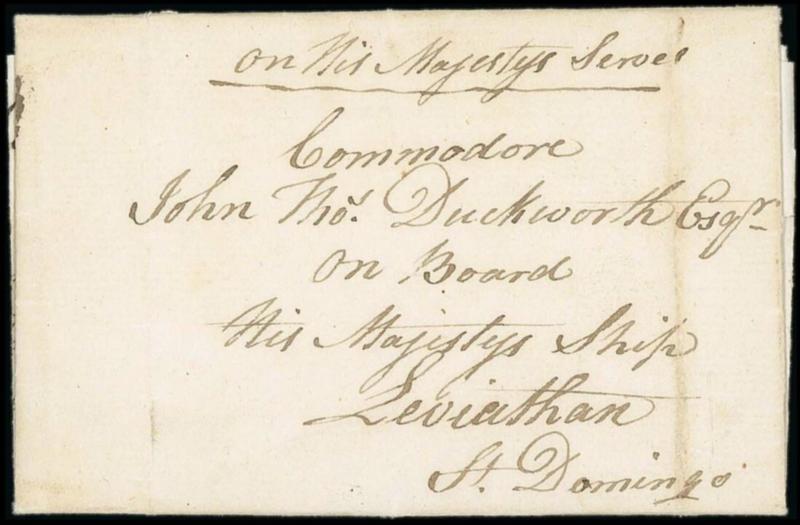 On His Majestys Serve
Commodore
John Thos. Duckworth Esqr.
On Board
His Majestys Ship
Leviathan
St. Domingo